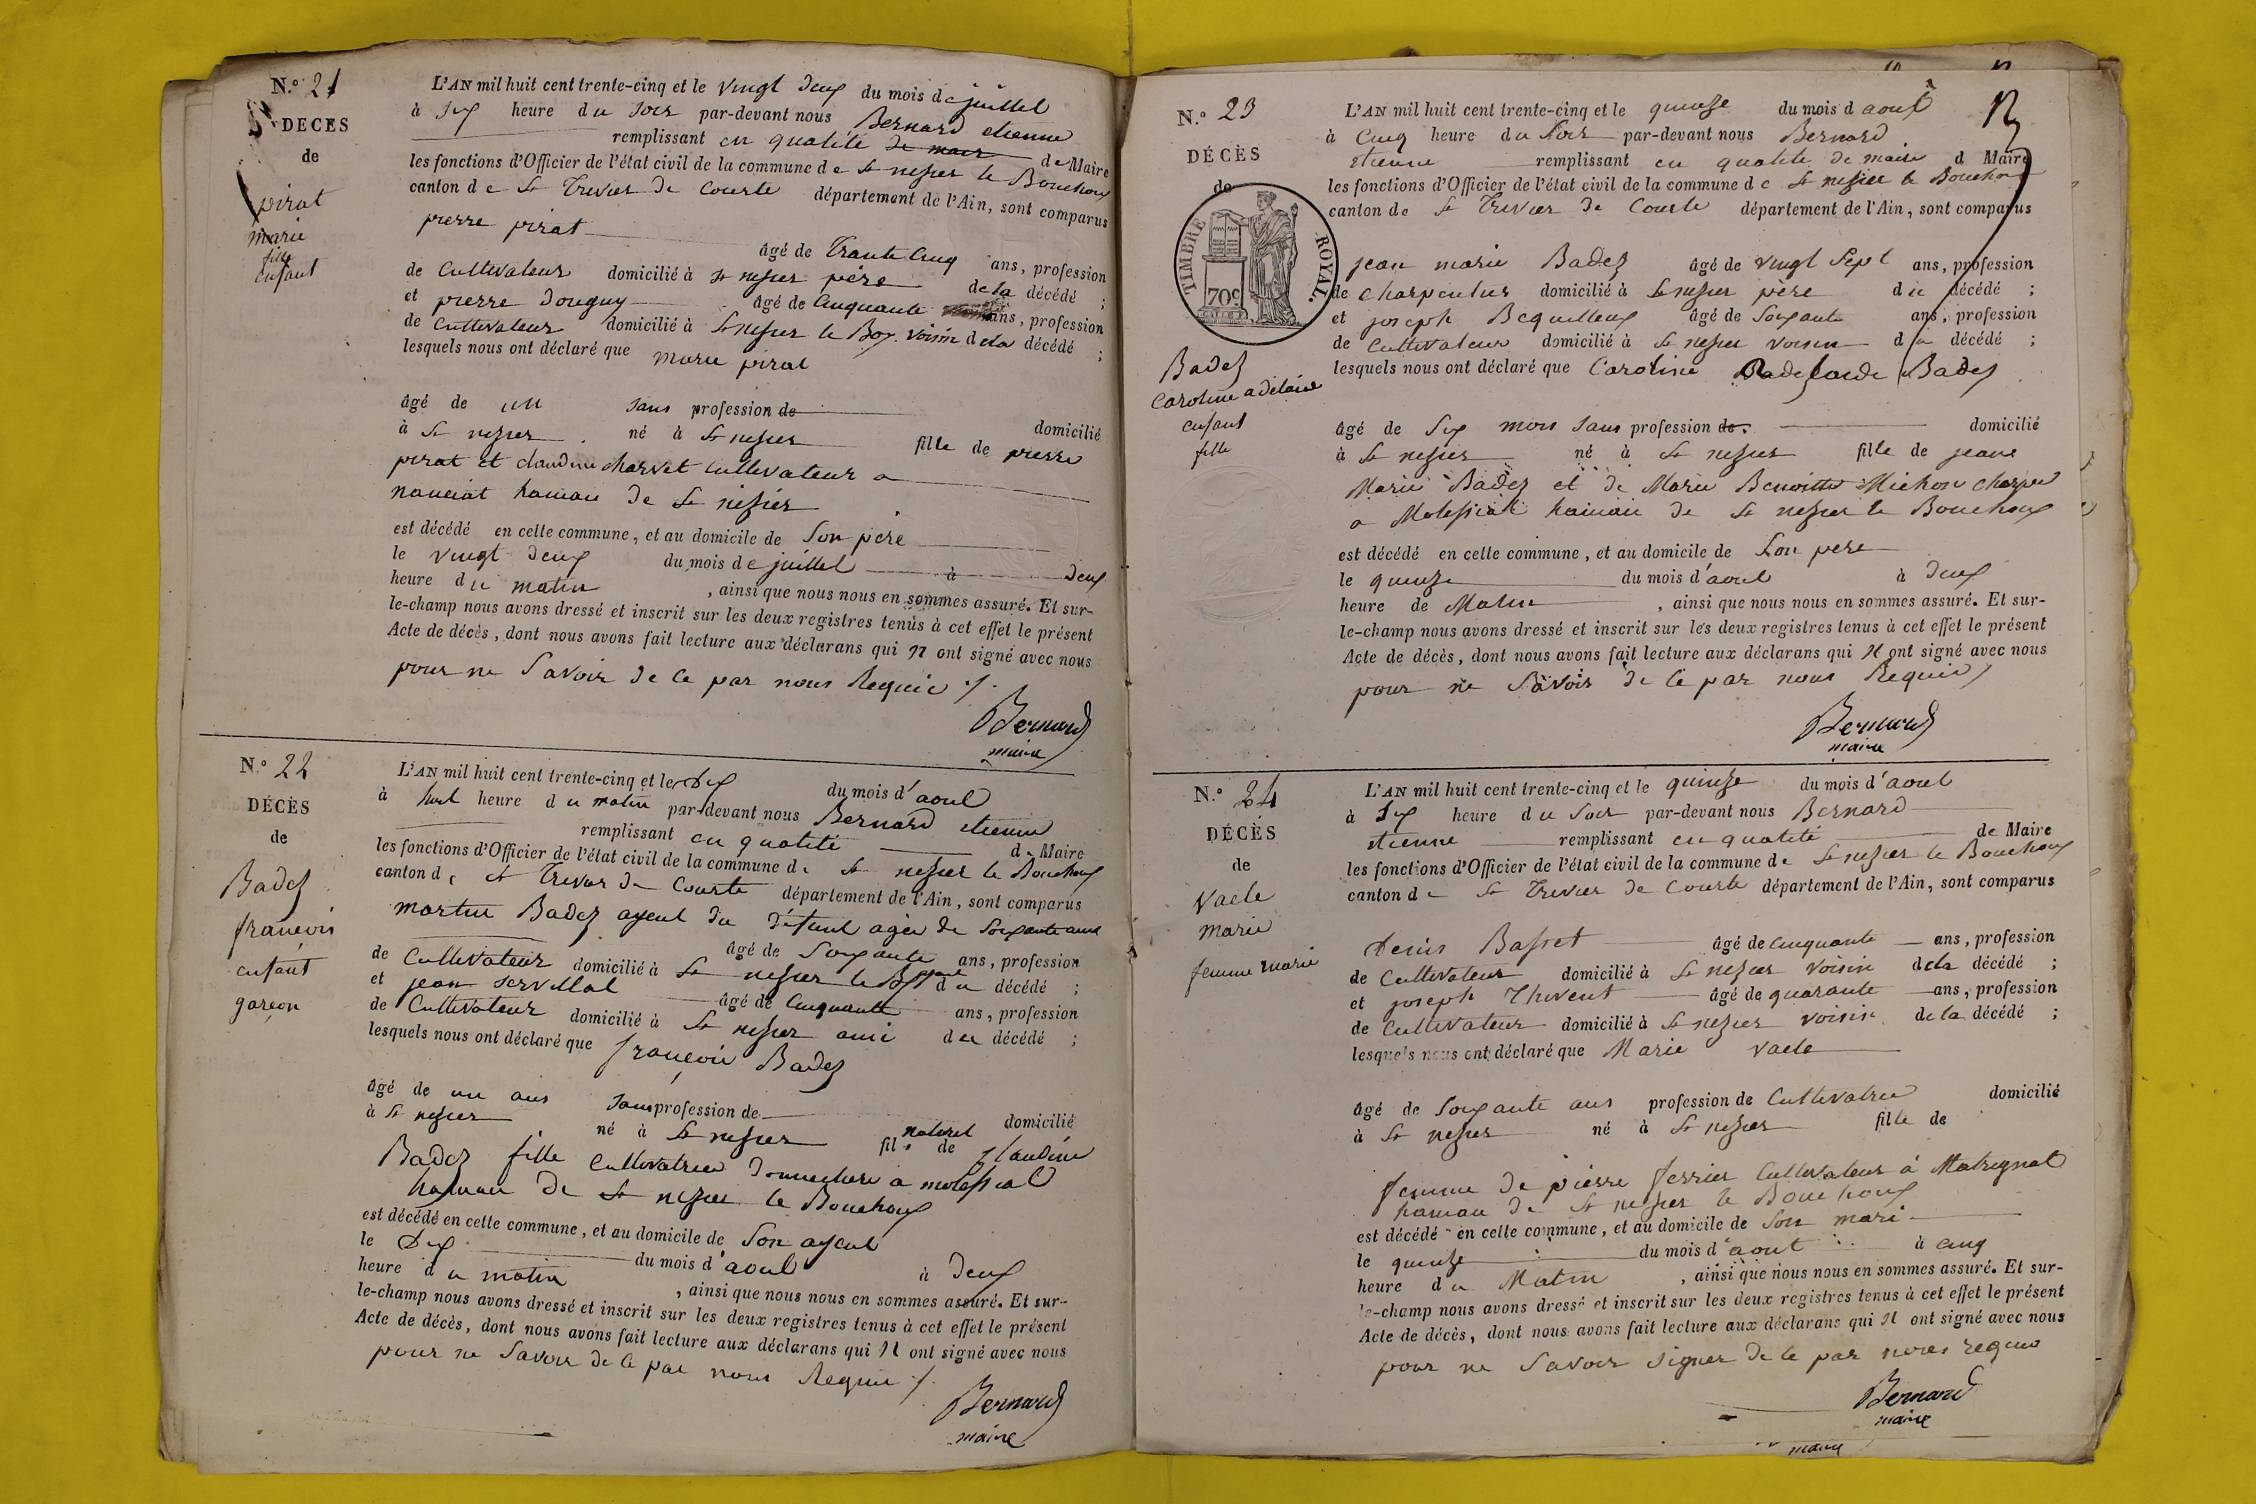 N.o 21
DECES
de
pirat
marie
fille
enfant
L'AN mil huit cent trente-cinq et le vingt deux du mois de juillet
à six heure du soir par-devant nous Bernard etienne
remplissant en qualité de maire de Maire
les fonctions d'Officier de l'état civil de la commune de St nisier le Bouchoux
canton de St Trivier de Courte département de l'Ain, sont comparus
pierre pirat
âgé de trante cinq ans, profession
de Cultivateur domicilié à St nisier père de la décédé ;
et pierre douguy âgé de cinquante ans, profession
de cultivateur domicilié à St nisier le Box voisin de la décédé ;
lesquels nous ont déclaré que marie pirat
âgé de un sans profession de domicilié
à St nisier né à St nisier fille de pierre
pirat et claudine charvet cultivateur a
hamau de St nisier
est décédé en cette commune, et au domicile de son père
le vingt deux du mois de juillet à deux
heure du matin , ainsi que nous nous en sommes assuré. Et sur-
le-champ nous avons dressé et inscrit sur les deux registres tenus à cet effet le présent
Acte de décès, dont nous avons fait lecture aux déclarans qui n ont signé avec nous
pour ne savoir de ce par nous Requie
Bernard
maire
N.o 22
DÉCÈS
de
Badez
françois
enfant
garçon
L'AN mil huit cent trente-cinq et le dix du mois d'aout
à huit heure du matin par-devant nous Bernard etienne
remplissant en qualité de Maire
les fonctions d'Officier de l'état civil de la commune de St nisier le Bouchoux
canton de St Trivier de Courte département de l'Ain, sont comparus
martin Badez ayeul du défunt agée de soixante ans
âgé de soixante ans, profession
de Cultivateur domicilié à St nisier le du décédé ;
et jean servillat âgé de cinquante ans, profession
de Cultivateur domicilié à St nisier ami du décédé ;
lesquels nous ont déclaré que françois Badez
âgé de un ans sans profession de domicilié
à St nisier né à St nisier fils naturel de Claudine
Badez fille cultivatrice domiciliée a molissiat
hamau de St nisier le Bouchoux
est décédé en cette commune, et au domicile de son ayeul
le dix du mois d'aout à deux
heure du matin , ainsi que nous nous en sommes assuré. Et sur-
le-champ nous avons dressé et inscrit sur les deux registres tenus à cet effet le présent
Acte de décès, dont nous avons fait lecture aux déclarans qui n ont signé avec nous
pour ne savoir de ce par nous Requie
Bernard
maire
N.o 23
DÉCÈS
de
TIMBRE ROYAL.
70c
Badez
Caroline adelaide
enfant
fille
L'AN mil huit cent trente-cinq et le quinze du mois d aout
à cinq heure du soir par-devant nous Bernard
etienne remplissant en qualité de maire d Maire
les fonctions d'Officier de l'état civil de la commune de St nisier le Bouchoux
canton de St Trivier de Courte département de l'Ain, sont comparus
jean marie Badez âgé de vingt sept ans, profession
de charpentier domicilié à St nisier père du décédé ;
et joseph Bequilleux âgé de soixante ans, profession
de cultivateur domicilié à St nisier voisin du décédé ;
lesquels nous ont déclaré que Caroline Badez
âgé de six mois sans profession de domicilié
à St nisier né à St nisier fille de jean
Marie Badez et de Marie Benoitte Michon charpen
a Molissiat hamau de St nisier le Bouchoux
est décédé en cette commune, et au domicile de son père
le quinze du mois d'aout à deux
heure de Matin , ainsi que nous nous en sommes assuré. Et sur-
le-champ nous avons dressé et inscrit sur les deux registres tenus à cet effet le présent
Acte de décès, dont nous avons fait lecture aux déclarans qui n ont signé avec nous
pour ne savoir de ce par nous Requis
Bernard
maire
N.o 24
DÉCÈS
de
Vacle
marie
femme marié
L'AN mil huit cent trente-cinq et le quinze du mois d'aout
à six heure du soir par-devant nous Bernard
etienne remplissant en qualité de Maire
les fonctions d'Officier de l'état civil de la commune de St nisier le Bouchoux
canton de St Trivier de Courte département de l'Ain, sont comparus
Denis Basset âgé de cinquante ans, profession
de Cultivateur domicilié à St nisier voisin de la décédé ;
et joseph Thivent âgé de quarante ans, profession
de cultivateur domicilié à St nisier voisin de la décédé ;
lesquels nous ont déclaré que Marie Vacle
âgé de soixante ans profession de Cultivatrice domicilié
à St nisier né à St nisier fille de
femme de pierre ferrier cultivateur à Matrignat
hamau de St nisier le Bouchoux
est décédé en cette commune, et au domicile de son mari
le quinze du mois d'aout à cinq
heure du Matin , ainsi que nous nous en sommes assuré. Et sur-
le-champ nous avons dressé et inscrit sur les deux registres tenus à cet effet le présent
Acte de décès, dont nous avons fait lecture aux déclarans qui n ont signé avec nous
pour ne savoir signer de ce par nous requis
Bernard
maire
maire